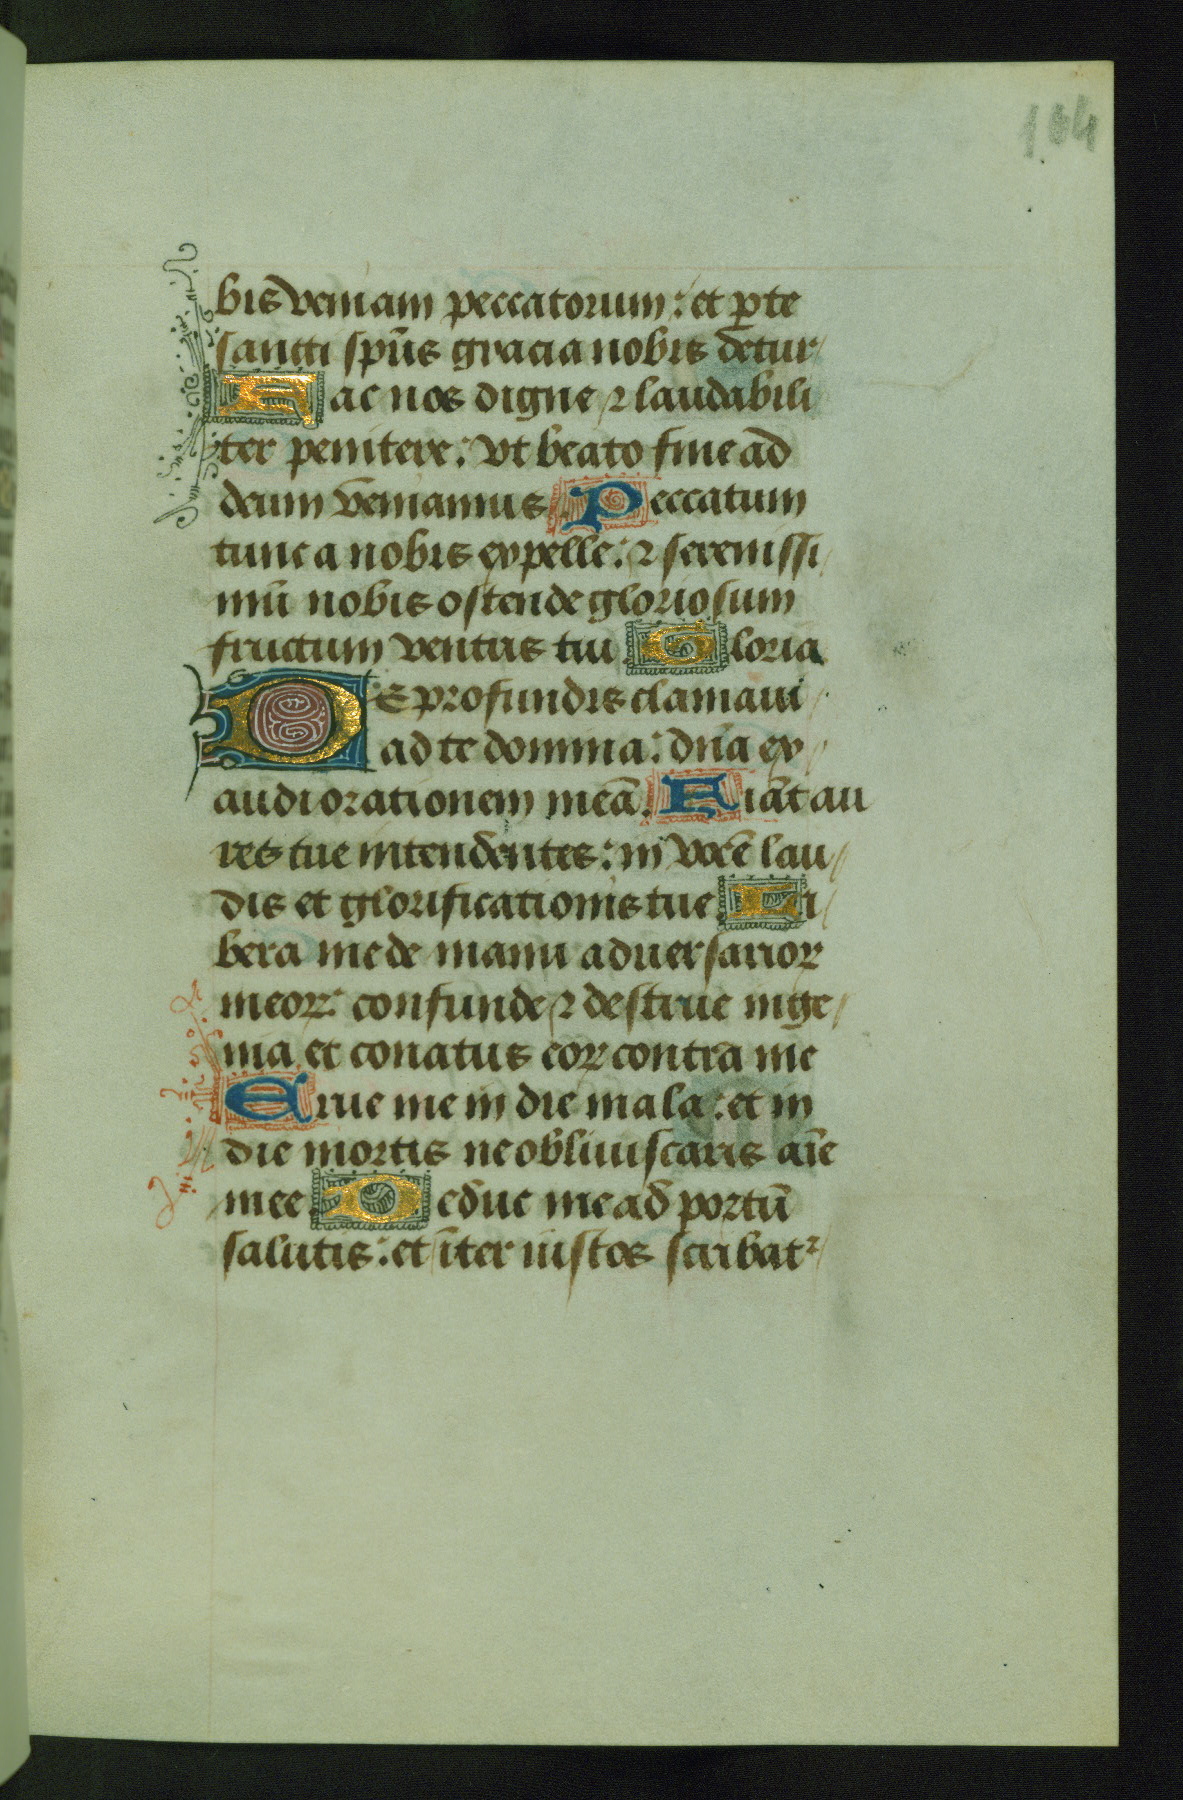 164
bis veniam peccatorum : et ꝑ te
sancti spūs gracia nobis detur
Fac nos digne ⁊ laudabili
ter penitere : vt beato fine ad
deum veniamus Peccatum
tunc a nobis expelle : ⁊ serenissi
mū nobis ostende gloriosum
fructum ventris tui Gloria
DE profundis clamaui
ad te domina : dn̄a ex
audi orationem meā. Fiāt au
res tue intendentes : in vocē lau
dis et glorificationis tue Li
bera me de manu aduersarioꝝ
meoꝝ : confunde ⁊ destrue inge
nia et conatus eoꝝ contra me
Erue me in die mala : et in
die mortis ne obliuiscaris aīe
mee Deduc me ad portū
salutis : et īter iustos scribatᷣ